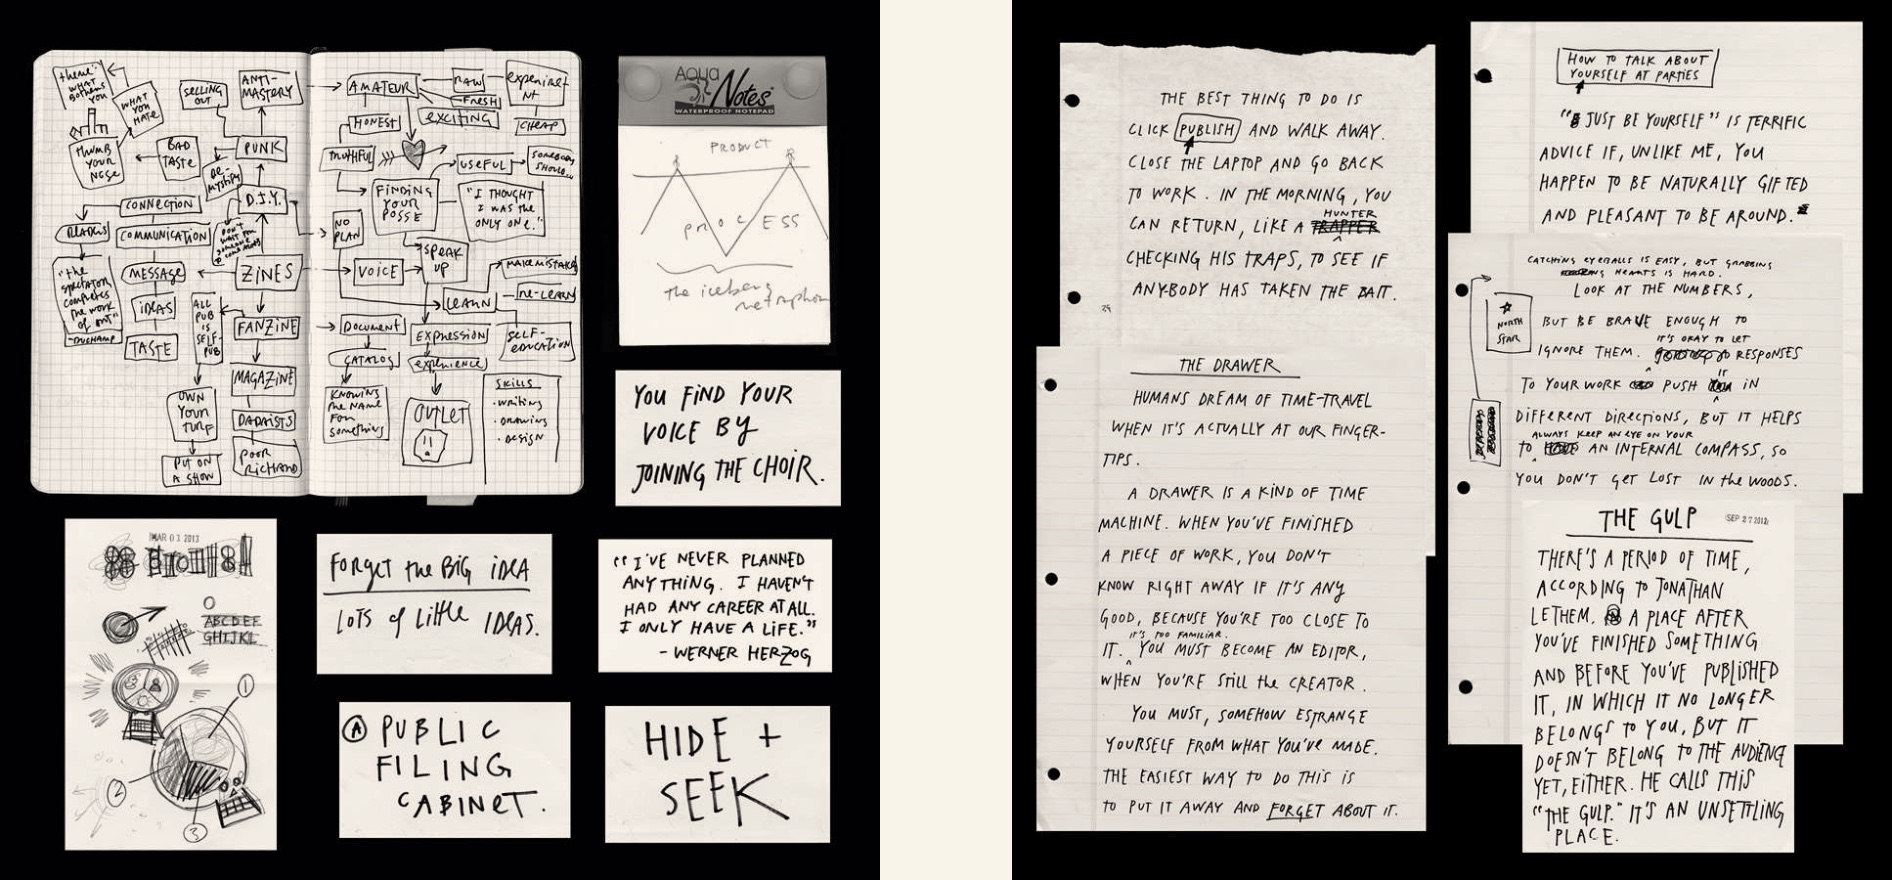 "theme"
WHAT
BOTHERS
YOU
WHAT
YOU
HATE
SELLING
OUT
ANTI-
MASTERY
THUMB
YOUR
NOSE
BAD
TASTE
PUNK
DE-
MYSTIFY
D.I.Y.
CONNECTION
READERS
COMMUNICATION
DON'T
WAIT FOR
SOMEONE
"the
spectator
completes
the work
of art"
-DUCHAMP
MESSAGE
ZINES
IDEAS
TASTE
ALL
PUB
IS
SELF-
PUB
FANZINE
MAGAZINE
OWN
YOUR
TURF
DADAISTS
PUT ON
A SHOW
POOR
RICHARD
AMATEUR
RAW
FRESH
EXCITING
experiment
CHEAP
HONEST
TRUTHFUL
USEFUL
SOMEBODY
SHOULD
FINDING
YOUR
POSSE
"I THOUGHT
I WAS the
ONLY ONE."
NO
PLAN
SPEAK
UP
VOICE
MAKE MISTAKES
LEARN
RE-LEARN
DOCUMENT
EXPRESSION
SELF-
EDUCATION
CATALOG
experience
KNOWING
the NAME
FOR
something
OUTLET
!!
SKILLS
· WRITING
· DRAWING
· DESIGN
AQUA
Notes
WATERPROOF NOTEPAD
PRODUCT
PROCESS
the iceberg
metaphor
YOU FIND YOUR
VOICE BY
JOINING THE CHOIR.
MAR 01 2013
ABCDEF
GHIJKL
1
2
3
FORGET the BIG IDEA
LOTS of Little IDEAS.
"I'VE NEVER PLANNED
ANYTHING. I HAVEN'T
HAD ANY CAREER AT ALL.
I ONLY HAVE A LIFE."
- WERNER HERZOG
A PUBLIC
FILING
CABINET.
HIDE +
SEEK
THE BEST THING TO DO IS
CLICK PUBLISH AND WALK AWAY.
CLOSE THE LAPTOP AND GO BACK
TO WORK. IN THE MORNING, YOU
HUNTER
CAN RETURN, LIKE A TRAPPER
CHECKING HIS TRAPS, TO SEE IF
ANYBODY HAS TAKEN THE BAIT.
THE DRAWER
HUMANS DREAM OF TIME-TRAVEL
WHEN IT'S ACTUALLY AT OUR FINGER-
TIPS.
A DRAWER IS A KIND OF TIME
MACHINE. WHEN YOU'VE FINISHED
A PIECE OF WORK, YOU DON'T
KNOW RIGHT AWAY IF IT'S ANY
GOOD, BECAUSE YOU'RE TOO CLOSE TO
IT'S TOO FAMILIAR.
IT. YOU MUST BECOME AN EDITOR,
WHEN YOU'RE STILL the CREATOR.
YOU MUST, SOMEHOW ESTRANGE
YOURSELF FROM WHAT YOU'VE MADE.
THE EASIEST WAY TO DO THIS IS
TO PUT IT AWAY AND FORGET ABOUT IT.
HOW TO TALK ABOUT
YOURSELF AT PARTIES
"JUST BE YOURSELF" IS TERRIFIC
ADVICE IF, UNLIKE ME, YOU
HAPPEN TO BE NATURALLY GIFTED
AND PLEASANT TO BE AROUND.
CATCHING EYEBALLS IS EASY, BUT GRABBING
HEARTS IS HARD.
LOOK AT THE NUMBERS,
NORTH
STAR
BUT BE BRAVE ENOUGH TO
IT'S OKAY TO LET
IGNORE THEM. RESPONSES
TO YOUR WORK PUSH IT IN
DIFFERENT DIRECTIONS, BUT IT HELPS
ALWAYS KEEP AN EYE ON YOUR
TO AN INTERNAL COMPASS, SO
YOU DON'T GET LOST IN the WOODS.
THE GULP
SEP 27 2012
THERE'S A PERIOD OF TIME,
ACCORDING TO JONATHAN
LETHEM. A PLACE AFTER
YOU'VE FINISHED SOMETHING
AND BEFORE YOU'VE PUBLISHED
IT, IN WHICH IT NO LONGER
BELONGS TO YOU, BUT IT
DOESN'T BELONG TO THE AUDIENCE
YET, EITHER. HE CALLS THIS
"THE GULP." IT'S AN UNSETTLING
PLACE.